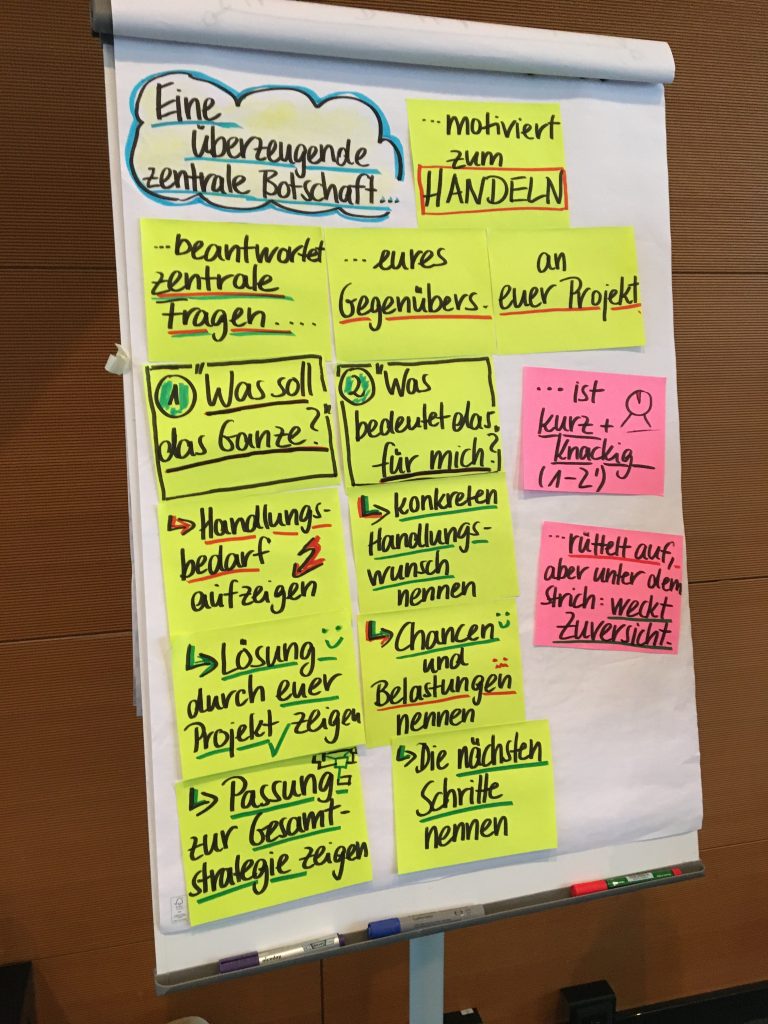 Eine
überzeugende
zentrale Botschaft...
...motiviert
zum
HANDELN
...beantwortet
zentrale
Fragen....
...eures
Gegenübers.
an
euer Projekt.
1 "Was soll
das Ganze?"
2 "Was
bedeutet das
für mich?"
...ist
kurz +
knackig
(1-2')
Handlungs-
bedarf
aufzeigen
konkreten
Handlungs-
wunsch
nennen
...rüttelt auf,
aber unter dem
Strich: weckt
Zuversicht.
Lösung
durch euer
Projekt zeigen
Chancen
und
Belastungen
nennen
Passung
zur Gesamt-
strategie zeigen
Die nächsten
Schritte
nennen